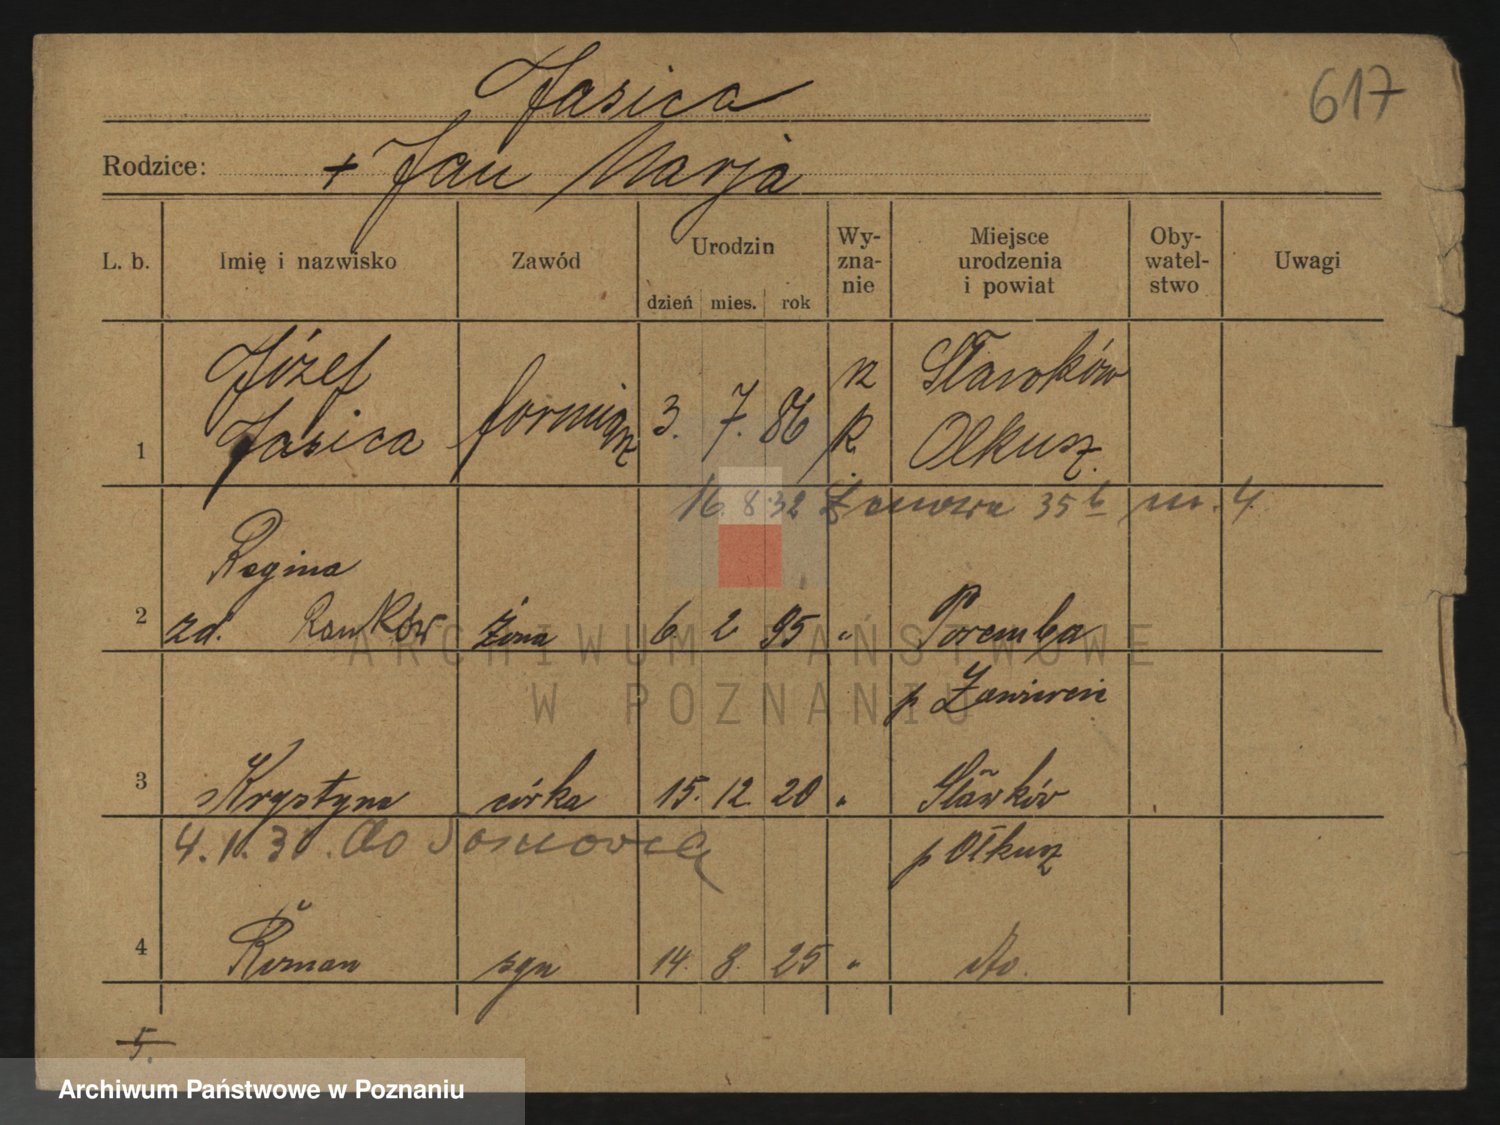 Jasica
617
Rodzice: + Jan Marja
L. b. Imię i nazwisko Zawód Urodzin dzień mies. rok Wy-zna-nie Miejsce urodzenia i powiat Oby-watel-stwo Uwagi
Józef rz Sławków
1 Jasica formiarz 3. 7. 86 k. Olkusz.
16. 8.32 35 b m. 4.
Regina
2 zd. żona 6 2 95 " Poremba
ARCHIWUM PAŃSTWOWE
W POZNANIU
p Zawiercie
3 Krystyna córka 15. 12. 20 " Sławków
4. 30. do Sosnowca
p Olkusz
4 Roman syn 14. 8. 25 " dto.
5.
Archiwum Państwowe w Poznaniu